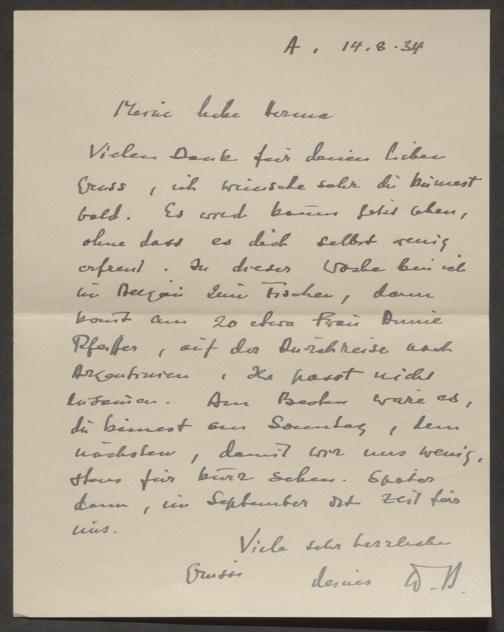 A, 14.8.34
Meine liebe Herma
Vielen Dank für deinen lieben
Gruss, ich wünsche sehr du kämest
bald. Es wird kaum sein,
ohne dass es dich selbst wenig
erfreut. In dieser Woche bin ich
im zum Fischen, dann
komt am 20 etwa Frau Annie
Pfeiffer, auf der Durchreise nach
Argentinien, Ihr passt nicht
zusamen. Am Besten wäre es,
du kämest am Sonntag, dem
nächsten, damit wir uns wenig,
stens für kurz sehen. Später
dann, im September ist Zeit für
uns.
Viele sehr herzliche
Grüsse deines W.B.